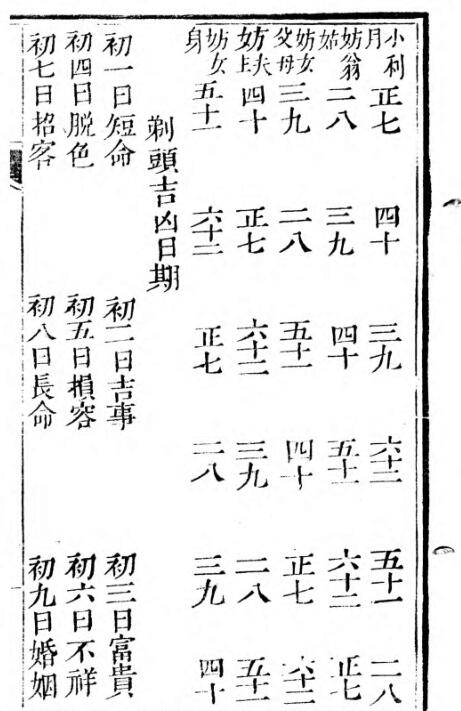 小利月 正七 四十 三九 六十二 五十一 二八
妨翁姑 二八 三九 四十 五十一 六十二 正七
妨女父母 三九 二八 五十一 四十 正七 六十二
妨夫主 四十 正七 六十二 三九 二八 五十一
妨女身 五十一 六十二 正七 二八 三九 四十
剃頭吉凶日期
初一日短命 初二日吉事 初三日富貴
初四日脱色 初五日損容 初六日不祥
初七日招客 初八日長命 初九日婚姻